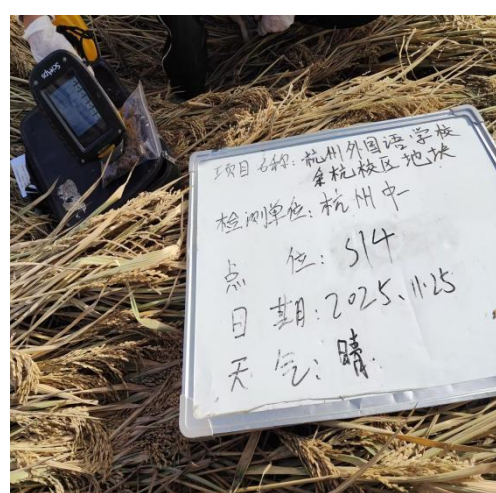 SciAps
项目名称:杭州外国语学校
余杭校区地块
检测单位:杭州中一
点 位:S14
日 期:2025、11.25
天 气:晴.